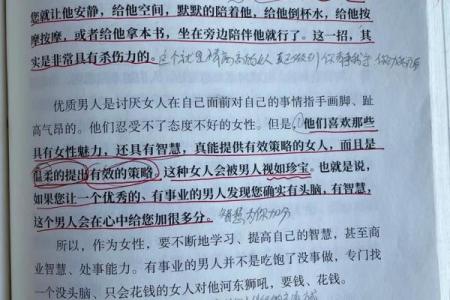 您就让他安静，给他空间，默默的陪着他，给他倒杯水，给他按
摩按摩，或者给他拿本书，坐在旁边陪伴他就行了。这一招，其
实是非常具有杀伤力的。
优质男人是讨厌女人在自己面前对自己的事情指手画脚、趾
高气昂的。他们忍受不了态度不好的女性。但是，他们喜欢那些
具有女性魅力，还具有智慧，真能提供有效策略的女人，而且是
温柔的提出有效的策略，这种女人会被男人视如珍宝。也就是说，
如果您让一个优秀的、有事业的男人发现您确实有头脑，有智慧，
这个男人会在心中给您加很多分。
智慧为你加分
所以，作为女性，要不断地学习、提高自己的智慧，甚至商
业智慧、处事能力。有事业的男人并不是吃饱了没事做，专门找
一个没头脑、只会花钱的女人对他河东狮吼，要钱、花钱。